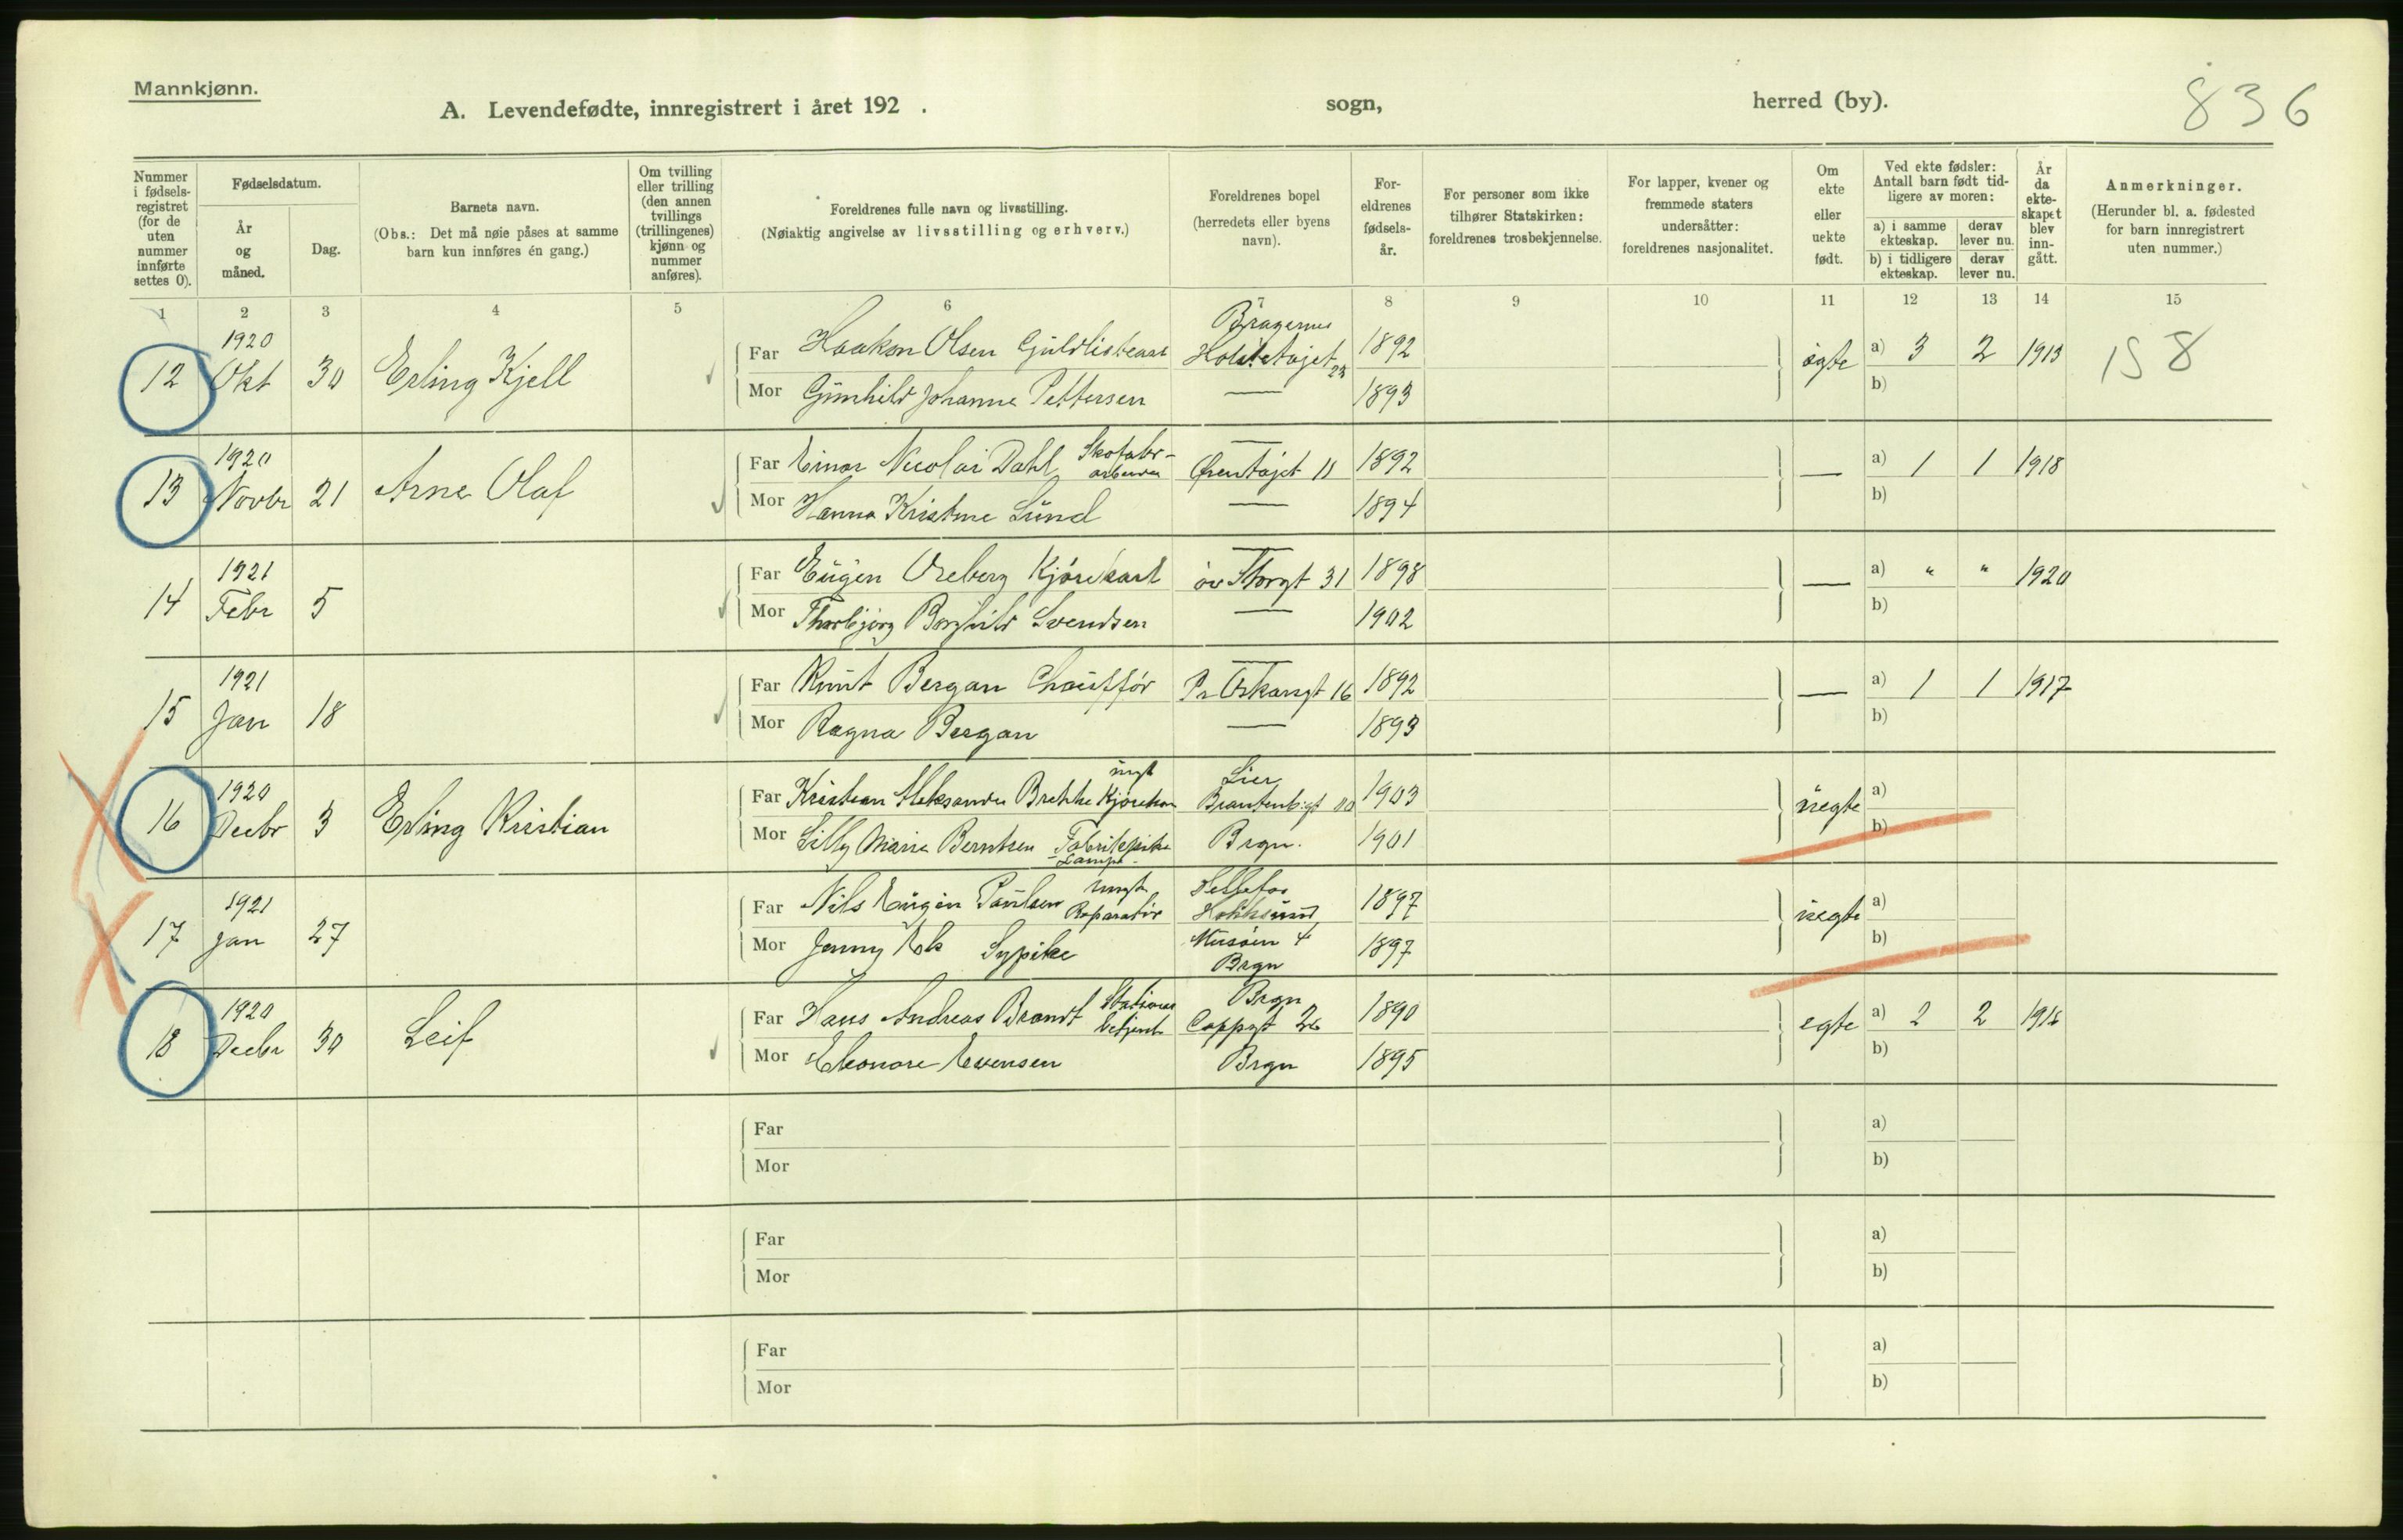 Mannkjønn.
A. Levendefødte, innregistrert i året 192 . sogn, herred (by).
836
Nummer i fødsels-registret (for de uten nummer innførte settes 0).
Fødselsdatum.
År og måned.
Dag.
Barnets navn.
(Obs.: Det må nøie påses at samme barn kun innføres én gang.)
Om tvilling eller trilling (den annen tvillings (trillingenes) kjønn og nummer anføres).
Foreldrenes fulle navn og livsstilling.
(Nøiaktig angivelse av livsstilling og erhverv.)
Foreldrenes bopel
(herredets eller byens navn).
For-eldrenes fødsels-år.
For personer som ikke tilhører Statskirken: foreldrenes trosbekjennelse.
For lapper, kvener og fremmede staters undersåtter: foreldrenes nasjonalitet.
Om ekte eller uekte født.
Ved ekte fødsler: Antall barn født tid-ligere av moren:
a) i samme ekteskap.
derav lever nu.
b) i tidligere ekteskap.
derav lever nu.
År da ekte-skapet blev inn-gått.
Anmerkninger.
(Herunder bl. a. fødested for barn innregistrert uten nummer.)
1 2 3 4 5 6 7 8 9 10 11 12 13 14 15
12 1920 Okt 30 Erling Kjell
Far Haakon Olsen Bragernes 1892
Mor Gunhild Johanne Pettersen — 1893
egte a) 3 2 1913 158
b)
13 1920 Novbr 21 Arne Olaf
Far Einar Nicolai Dahl Ørentajet 11 1892
Mor Hanna Kristine Lund — 1894
— a) 1 1 1918
b)
14 1921 Febr 5
Far Eugen Oreberg Kjørekarl øv Storgt 31 1898
Mor Thorbjørg Borghild Svendsen — 1902
— a) " " 1920
b)
15 1921 Jan 18
Far Knut Bergan Chauffør Pr Oskarsgt 16 1892
Mor Ragna Bergan — 1893
— a) 1 1 1917
b)
16 1920 Decbr 3 Erling Kristian
Far Kristian Aleksander Brekke ungk Kjørekar Lier 1903
Mor Lilly Marie Berntsen Fabrikpike Lampe- Brgn. 1901
uegte a)
b)
17 1921 Jan 27
Far Nils Eugen Paulsen ungk Reparatør Hokksund 1897
Mor Jenny Ek Sypike Brgn 1897
uegte a)
b)
18 1920 Decbr 30 Leif
Far Hans Andreas Brandt Stations betjent Brgn Cappgt 26 1890
Mor Eleonore Evensen Brgn 1895
egte a) 2 2 1916
b)
Far a)
Mor b)
Far a)
Mor b)
Far a)
Mor b)